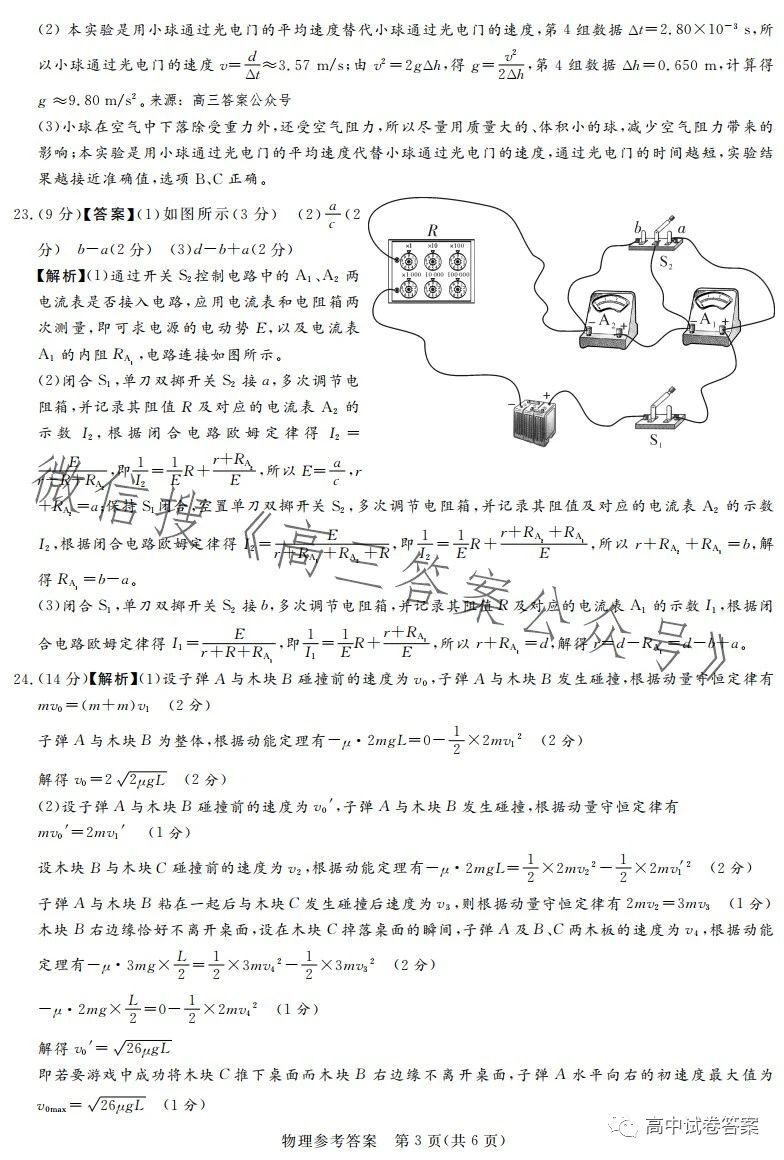 (2) 本实验是用小球通过光电门的平均速度替代小球通过光电门的速度,第 4 组数据 Δt=2.80×10⁻³ s,所
以小球通过光电门的速度 v=d/Δt≈3.57 m/s;由 v²=2gΔh,得 g=v²/2Δh,第 4 组数据 Δh=0.650 m,计算得
g≈9.80 m/s²。来源: 高三答案公众号
(3)小球在空气中下落除受重力外,还受空气阻力,所以尽量用质量大的、体积小的球,减少空气阻力带来的
影响;本实验是用小球通过光电门的平均速度代替小球通过光电门的速度,通过光电门的时间越短,实验结
果越接近准确值,选项 B、C 正确。
23.(9 分)【答案】(1)如图所示(3 分) (2)a/c(2
分) b-a(2 分) (3)d-b+a(2 分)
【解析】(1)通过开关 S₂控制电路中的 A₁、A₂ 两
电流表是否接入电路,应用电流表和电阻箱两
次测量,即可求电源的电动势 E,以及电流表
A₁ 的内阻 R_A₁,电路连接如图所示。
(2)闭合 S₁,单刀双掷开关 S₂ 接 a,多次调节电
阻箱,并记录其阻值 R 及对应的电流表 A₂ 的
示数 I₂,根据闭合电路欧姆定律得 I₂=
E/(r+R+R_A₂),即1/I₂=1/E R+(r+R_A₂)/E,所以 E=a/c,r
+R_A₂=a;保持 S₁闭合,空置单刀双掷开关 S₂,多次调节电阻箱,并记录其阻值及对应的电流表 A₂ 的示数
I₂,根据闭合电路欧姆定律得 I₂=E/(r+R_A₁+R_A₂+R),即1/I₂=1/E R+(r+R_A₂+R_A₁)/E,所以 r+R_A₂+R_A₁=b,解
得 R_A₁=b-a。
(3)闭合 S₁,单刀双掷开关 S₂ 接 b,多次调节电阻箱,并记录其阻值 R 及对应的电流表 A₁ 的示数 I₁,根据闭
合电路欧姆定律得 I₁=E/(r+R+R_A₁),即1/I₁=1/E R+(r+R_A₁)/E,所以 r+R_A₁=d,解得 r=d-R_A₁=d-b+a。
R
×1 ×10 ×100
×1 000 10 000 100 000
b a
S₂
- A₂ +
- A₁ +
- +
S₁
24.(14 分)【解析】(1)设子弹 A 与木块 B 碰撞前的速度为 v₀,子弹 A 与木块 B 发生碰撞,根据动量守恒定律有
mv₀=(m+m)v₁ (2 分)
子弹 A 与木块 B 为整体,根据动能定理有-μ·2mgL=0-1/2×2mv₁² (2 分)
解得 v₀=2√(2μgL) (2 分)
(2)设子弹 A 与木块 B 碰撞前的速度为 v₀′,子弹 A 与木块 B 发生碰撞,根据动量守恒定律有
mv₀′=2mv₁′ (1 分)
设木块 B 与木块 C 碰撞前的速度为 v₂,根据动能定理有-μ·2mgL=1/2×2mv₂²-1/2×2mv₁′² (2 分)
子弹 A 与木块 B 粘在一起后与木块 C 发生碰撞后速度为 v₃,则根据动量守恒定律有 2mv₂=3mv₃ (1 分)
木块 B 右边缘恰好不离开桌面,设在木块 C 掉落桌面的瞬间,子弹 A 及 B、C 两木板的速度为 v₄,根据动能
定理有-μ·3mg×L/2=1/2×3mv₄²-1/2×3mv₃² (2 分)
-μ·2mg×L/2=0-1/2×2mv₄² (1 分)
解得 v₀′=√(26μgL)
即若要游戏中成功将木块 C 推下桌面而木块 B 右边缘不离开桌面,子弹 A 水平向右的初速度最大值为
v₀max=√(26μgL) (1 分)
微信搜《高三答案公众号》
高中试卷答案
物理参考答案 第 3 页(共 6 页)